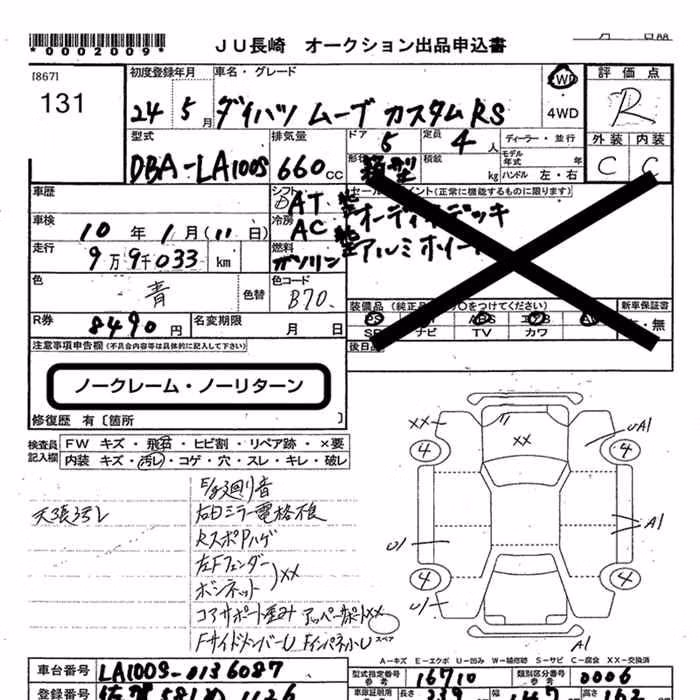 *0002009*
JU長崎 オークション出品申込書
[867]
131
初度登録年月
24 5月
車名・グレード
ダイハツ ムーブ カスタムRS
2WD
・4WD
評価点
R
外装 内装
C C
型式
DBA-LA100S
排気量
660cc
ドア 5
定員 4人
ディーラー・並行
形状 箱型
積載 kg
モデル年式 年
ハンドル 左・右
車歴
シフト
AT
セールスポイント(正常に機能するものに限ります)
オーディオデッキ
車検
10年1月(11日)
冷房
AC
アルミホイール
走行
9万9千033 km
燃料
ガソリン
色
青
色替
色コード
B70.
装備品 (純正品のみ〇をつけてください)
新車保証書
ナビ TV カワ
・無
後日品
R券
8490円
名変期限
月 日
注意事項申告欄(不具合内容等は具体的に記入して下さい)
ノークレーム・ノーリターン
修復歴 有〔箇所 〕
検査員記入欄
FW キズ・飛石・ヒビ割・リペア跡・×要
内装 キズ・汚レ・コゲ・穴・スレ・キレ・破レ
天張汚レ
E/g廻り音
右Dミラー電格不良
RスポPハゲ
左Fフェンダー
ボンネット
)××
コアサポート歪み アッパーサポート××
FサイドメンバーU FインパネルU
××
××
UA1
4
4
A1
U1
4
4
U1
A1
スペア
A-キズ E-エクボ U-凹み W-補修跡 S-サビ C-腐食 XX-交換済
車台番号
LA100S-0136087
型式指定番号
参考
16710
類別区分番号
参考
0006
登録番号
佐賀 581
1126
長さ
339
幅
147
高さ